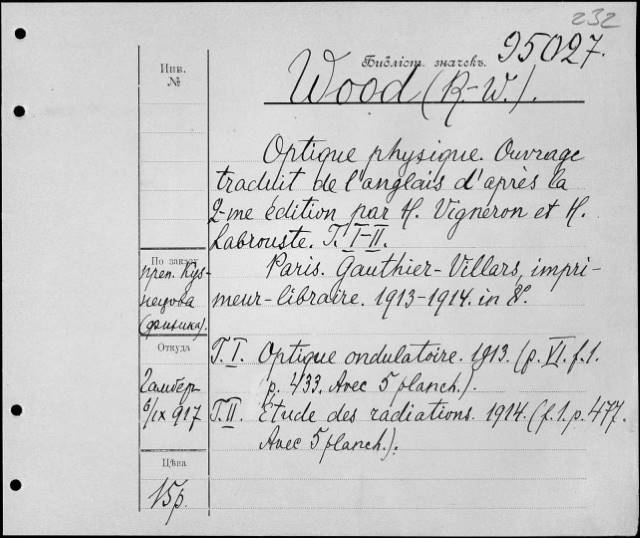 232
Инв.
№
Библіот. значекъ. 95027.
Wood (R.-W.).
Optique physique. Ouvrage
traduit de l'anglais d'après la
2-me édition par H. Vigneron et H.
Labrouste. T. I-II.
По заказу
преп. Куз-
нецова
(физика).
Paris. Gauthier-Villars, impri-
meur-libraire. 1913-1914. in 8°.
Откуда
Гамбер
6/IX 917
T. I. Optique ondulatoire. 1913. (p. VI. f. 1.
p. 433. Avec 5 planch.).
T. II. Étude des radiations. 1914. (f. 1. p. 477.
Avec 5 planch.).
Цѣна
15р.